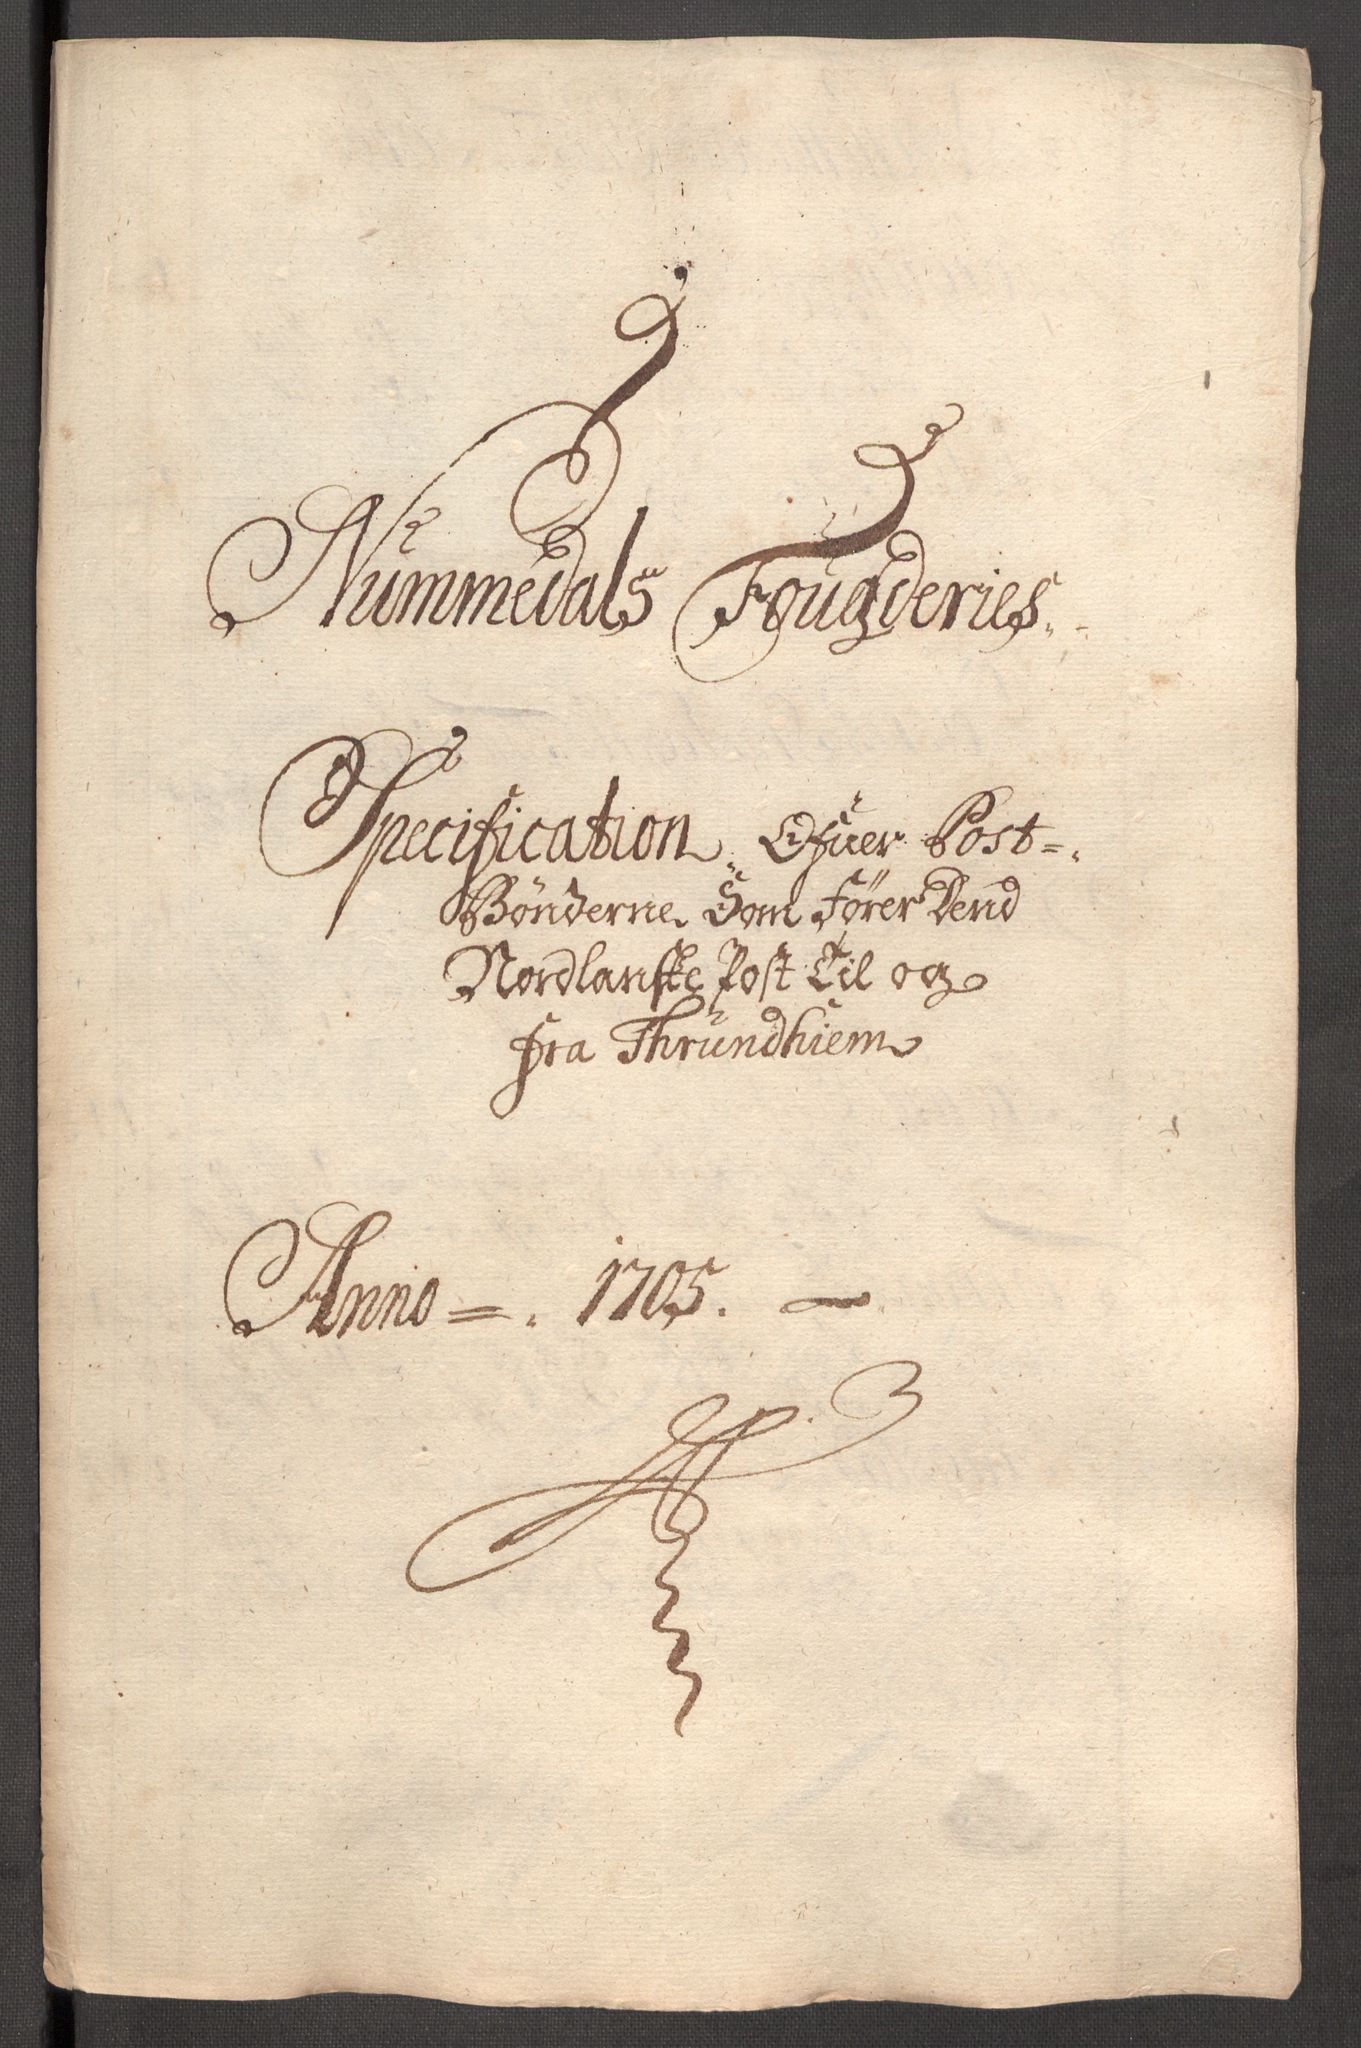 Nummedals Fougderies.
Specification, Ofuer Post=
Bønderne Som Fører Dend
Nordlanske Post Til og
fra Thrundhiem
Anno = . 1705. —